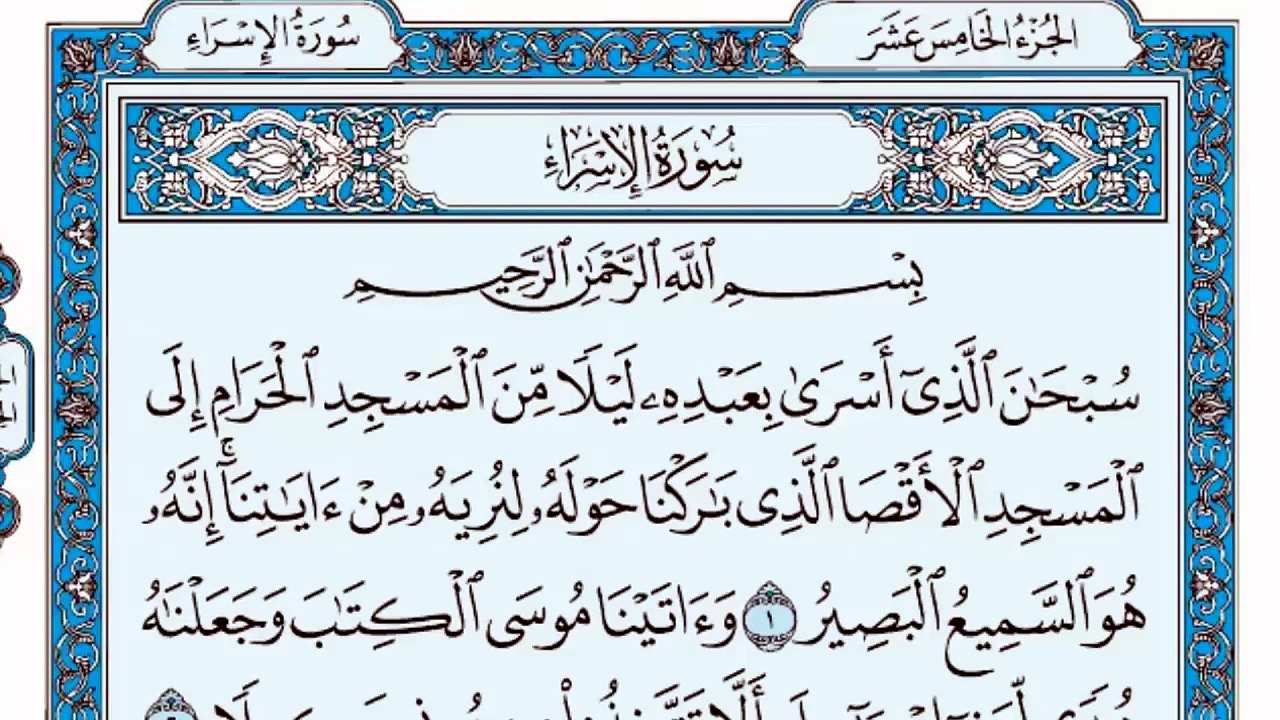 الجُزْءُ الخَامِسَ عَشَرَ
سُورَةُ الإِسْرَاءِ
سُورَةُ الإِسْرَاءِ
بِسْمِ ٱللَّهِ ٱلرَّحْمَٰنِ ٱلرَّحِيمِ
سُبْحَٰنَ ٱلَّذِىٓ أَسْرَىٰ بِعَبْدِهِۦ لَيْلًا مِّنَ ٱلْمَسْجِدِ ٱلْحَرَامِ إِلَى
ٱلْمَسْجِدِ ٱلْأَقْصَا ٱلَّذِى بَٰرَكْنَا حَوْلَهُۥ لِنُرِيَهُۥ مِنْ ءَايَٰتِنَآۚ إِنَّهُۥ
هُوَ ٱلسَّمِيعُ ٱلْبَصِيرُ ١ وَءَاتَيْنَا مُوسَى ٱلْكِتَٰبَ وَجَعَلْنَٰهُ